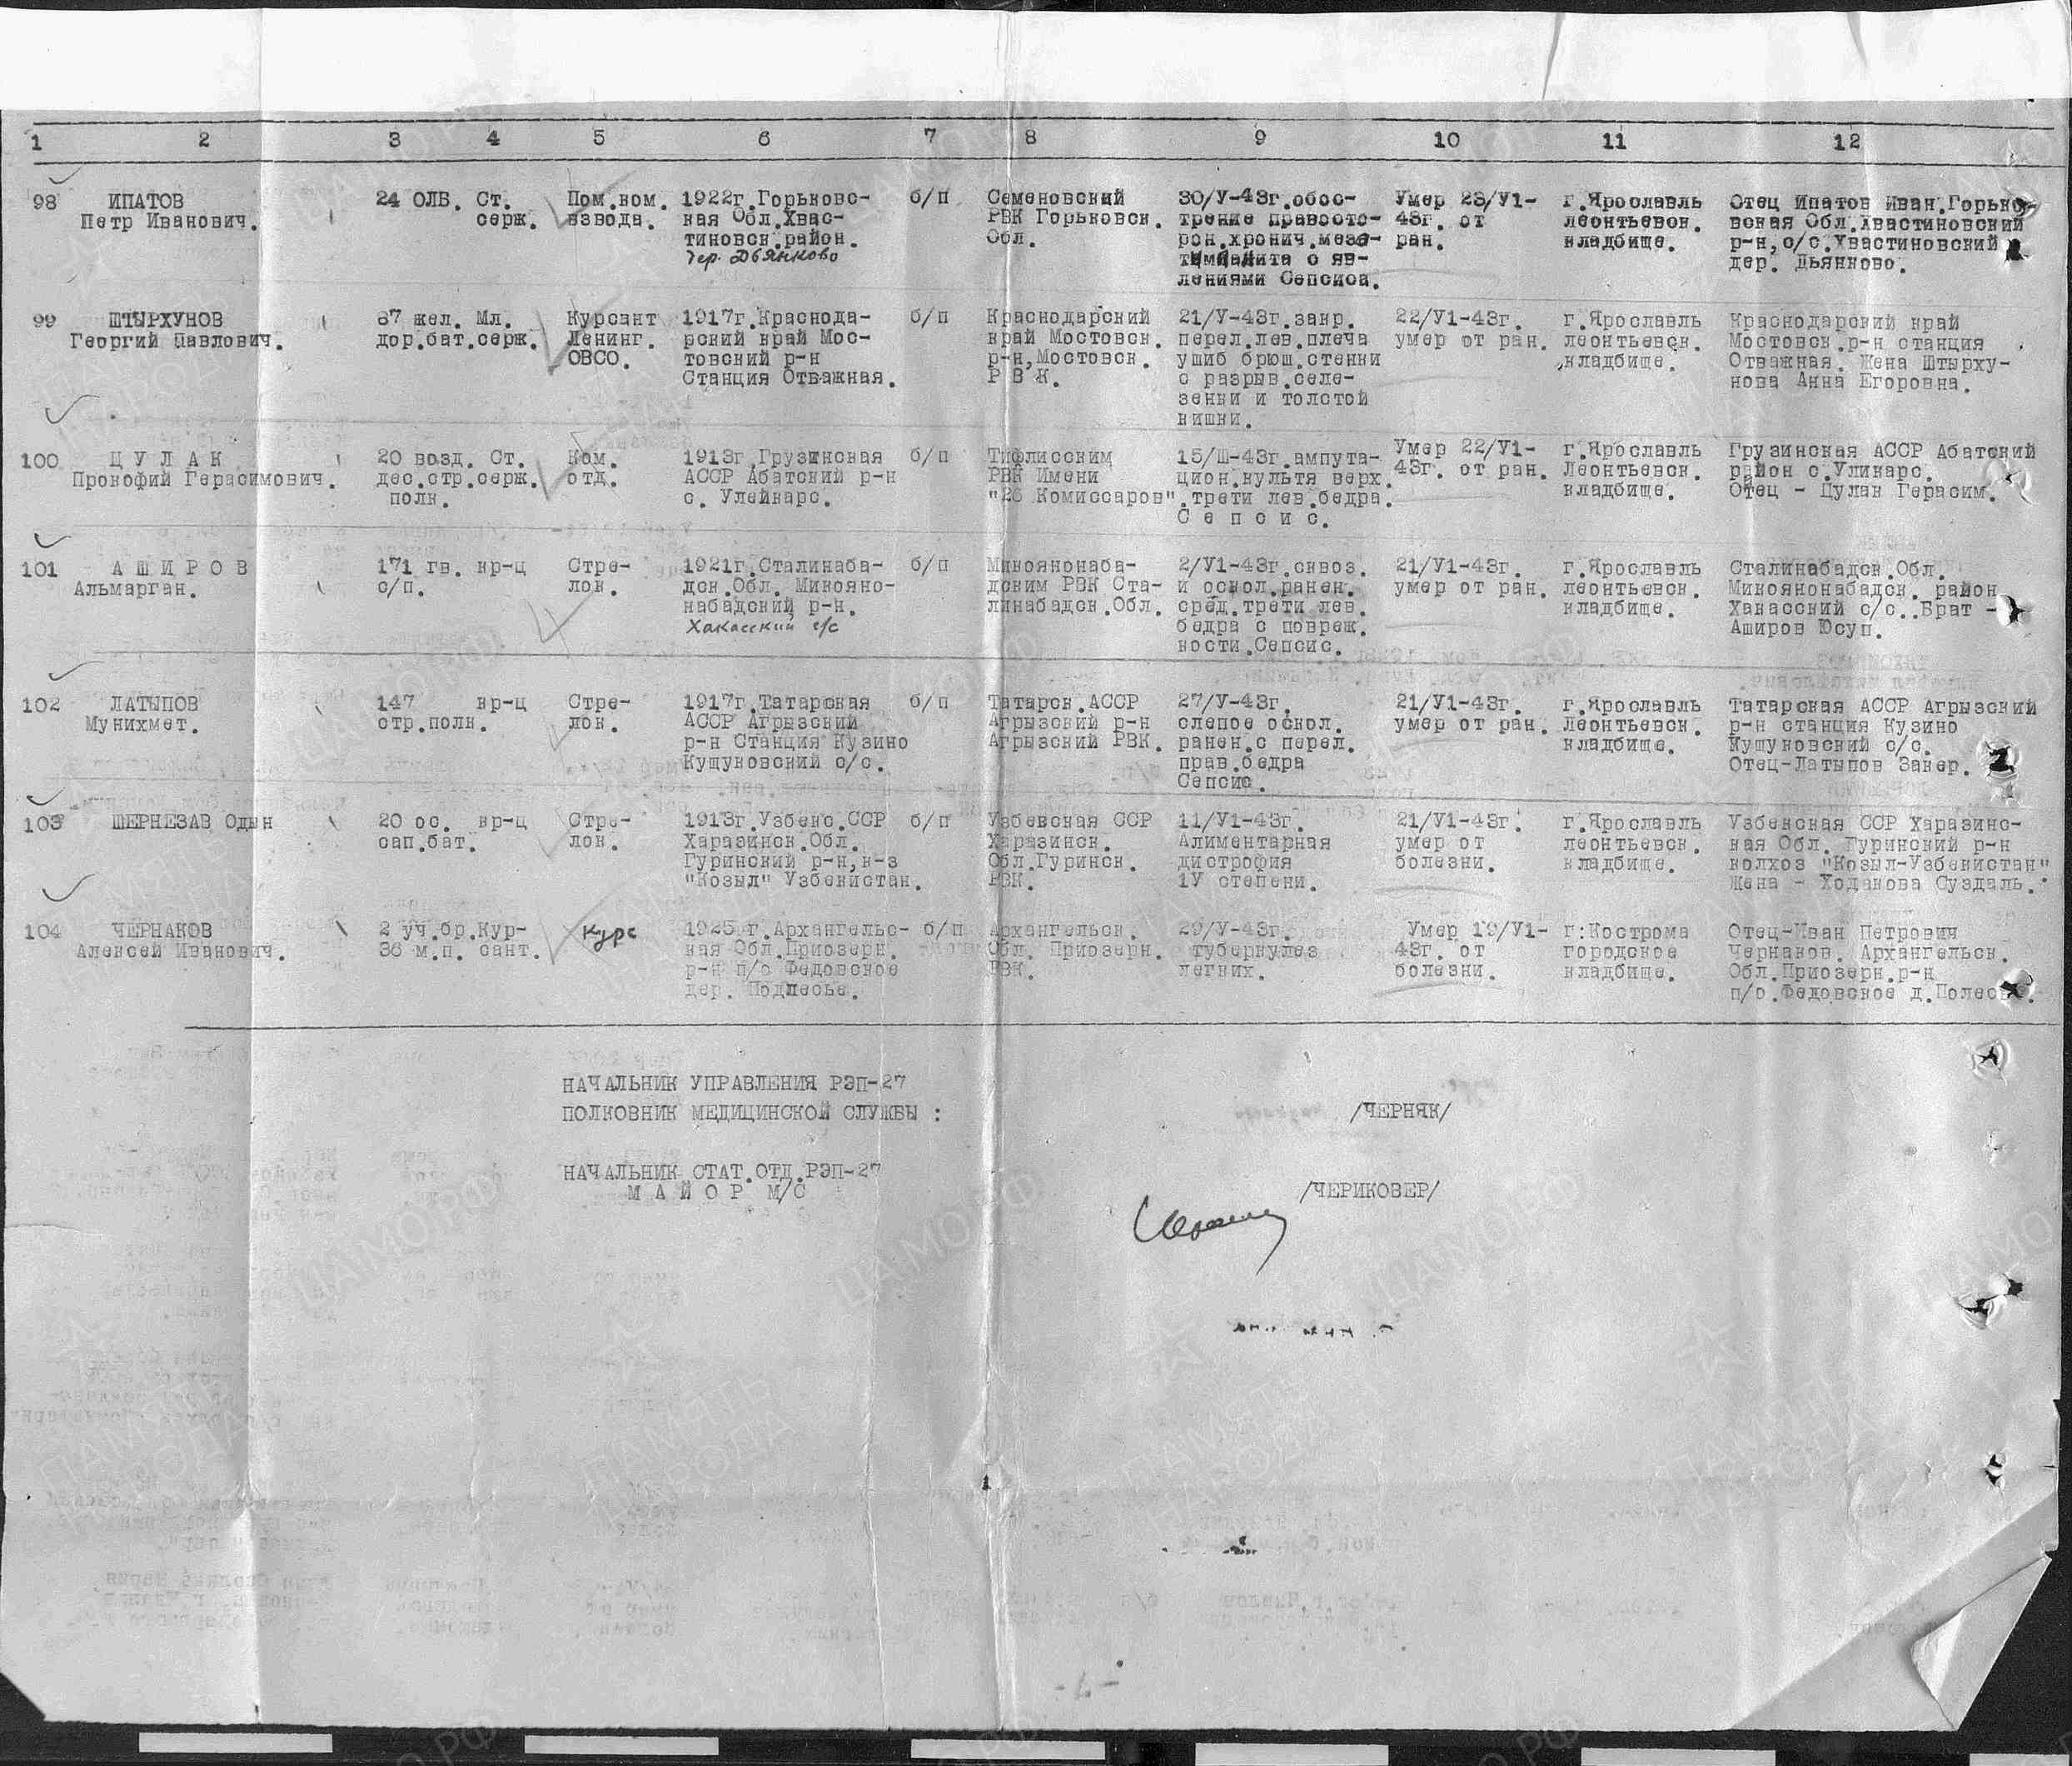 1 2 3 4 5 6 7 8 9 10 11 12
98 ИПАТОВ 24 ОЛБ. Ст. Пом.ком. 1922г.Горьковс- б/п Семеновский 30/У-43г.обос- Умер 23/У1- г.Ярославль Отец Ипатов Иван.Горько-
Петр Иванович. серж. взвода. кая Обл.Хвас- РВК Горьковск. трение правосто- 43г. от леонтьевск. вская Обл.Хвастиновский
тиновск.район. Обл. рон.хронич.мезо- ран. кладбище. р-н,с/с.Хвастиновский
дер. Дьянково тимпанита с яв- дер. Дьянково.
лениями Сепсиса.
99 ШТЫРХУНОВ 67 жел. Мл. Курсант 1917г.Краснода- б/п Краснодарский 21/У-43г.закр. 22/У1-43г. г.Ярославль Краснодарский край
Георгий Павлович. дор.бат.серж. Ленинг. рский край Мос- край Мостовск. перел.лев.плеча умер от ран. леонтьевск. Мостовск.р-н станция
ОВСО. товский р-н р-н,Мостовск. ушиб брюш.стенки кладбище. Отважная. Жена Штырху-
Станция Отважная. Р В К. с разрыв.селе- нова Анна Егоровна.
зенки и толстой
кишки.
100 Ц У Л А К 20 возд. Ст. Ком. 1913г.Грузинская б/п Тифлисским 15/Ш-43г.ампута- Умер 22/У1- г.Ярославль Грузинская АССР Абатский
Прокофий Герасимович. дес.стр.серж. отд. АССР Абатский р-н РВК Имени цион.культя верх. 43г. от ран. Леонтьевск. район с.Улинарс.
полк. с. Улейнарс. "26 Комиссаров". трети лев.бедра. кладбище. Отец - Цулак Герасим.
С е п с и с.
101 А Ш И Р О В 171 гв. кр-ц Стре- 1921г.Сталинаба- б/п Микоянонаба- 2/У1-43г.сквоз. 21/У1-43г. г.Ярославль Сталинабадск.Обл.
Альмарган. с/п. лок. дск.Обл. Микояно- дским РВК Ста- и оскол.ранен. умер от ран. леонтьевск. Микоянонабадск. район
набадский р-н. линабадск.Обл. сред.трети лев. кладбище. Хакасский с/с..Брат -
Хакасский с/с бедра с повреж. Аширов Юсуп.
кости.Сепсис.
102 ЛАТЫПОВ 147 кр-ц Стре- 1917г.Татарская б/п Татарск.АССР 27/У-43г. 21/У1-43г. г.Ярославль Татарская АССР Агрызский
Мунихмет. стр.полк. лок. АССР Агрызский Агрызский р-н слепое оскол. умер от ран. Леонтьевск. р-н станция Кузино
р-н Станция Кузино Агрызский РВК. ранен.с перел. кладбище. Кушуковский с/с.
Кушуковский с/с. прав.бедра Отец-Латыпов Закер.
Сепсис.
103 ШЕРНЕЗАВ Один 20 ос. кр-ц Стре- 1913г.Узбекс.ССР б/п Узбекская ССР 11/У1-43г. 21/У1-43г. г.Ярославль Узбекская ССР Харазинс-
сап.бат. лок. Харазинск.Обл. Харазинск. Алиментарная умер от леонтьевск. кая Обл. Гуринский р-н
Гуринский р-н,к-з Обл.Гуринск. дистрофия болезни. кладбище. колхоз "Козыл-Узбекистан"
"Козыл" Узбекистан. РВК. 1У степени. Жена - Ходакова Суздаль.
104 ЧЕРНАКОВ 2 уч.бр.Кур- Курс 1925 г.Архангельс- б/п Архангельск. 29/У-43г. Умер 19/У1- г.Кострома Отец-Иван Петрович
Алексей Иванович. 36 м.п. сант. кая Обл.Приозерн. Обл. Приозерн. туберкулез 43г. от городское Чернаков. Архангельск.
р-н п/о Федовское РВК. легких. болезни. кладбище. Обл.Приозерн.р-н
дер. Подлесье. п/о.Федовское д.Полесье.
НАЧАЛЬНИК УПРАВЛЕНИЯ РЭП-27
ПОЛКОВНИК МЕДИЦИНСКОЙ СЛУЖБЫ : /ЧЕРНЯК/
НАЧАЛЬНИК СТАТ.ОТД.РЭП-27
М А Й О Р М/С /ЧЕРИКОВЕР/